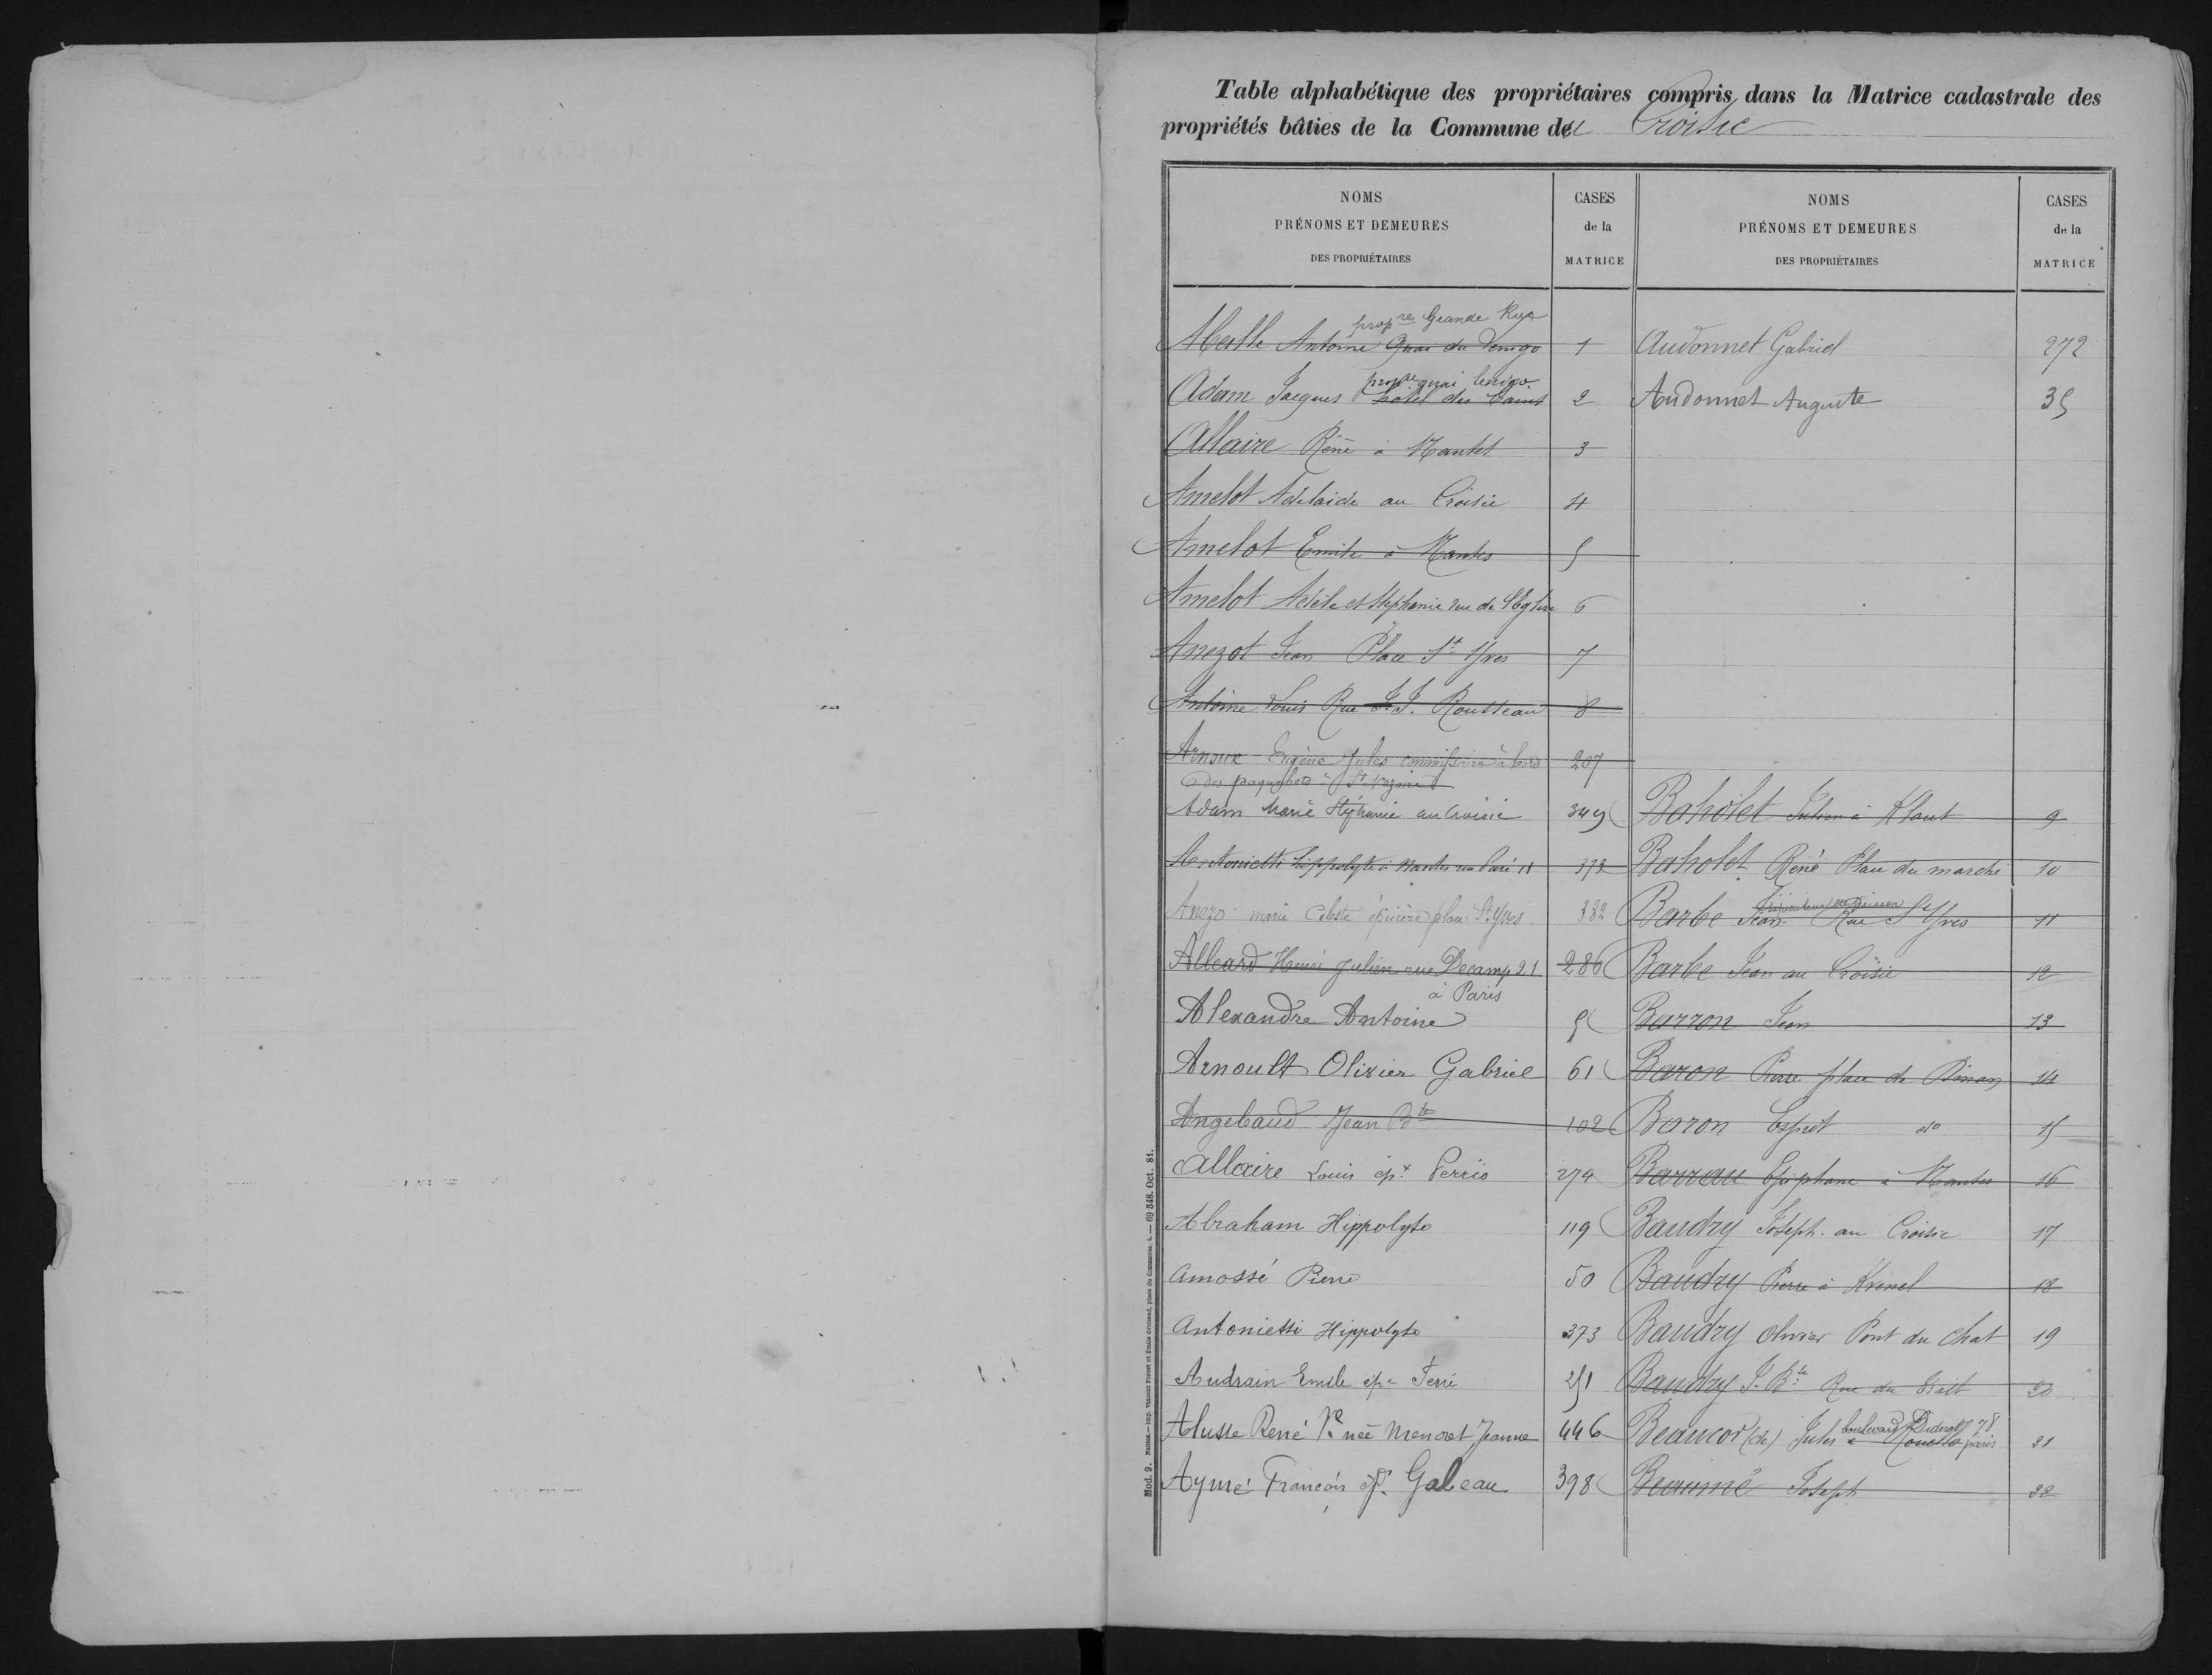 Table alphabétique des propriétaires compris dans la Matrice cadastrale des
propriétés bâties de la Commune du Croisic
NOMS
PRÉNOMS ET DEMEURES
DES PROPRIÉTAIRES
CASES
de la
MATRICE
propre Grande Rue
Antoine Quai du Lenigo 1
propre quai Lenigo
Adam Jacques hôtel des 2
Allaire Réné à Nantes 3
Amelot Adélaide au Croisic 4
Amelot Emile à Nantes 5
Amelot Adèle et Stéphanie rue de l'Eglise 6
Anezot Jean Place St Yves 7
Antoine Louis Rue J. J. Rousseau 8
Arnoux Eugène Jules commissaire à bord 207
des paquebots à St Nazaire
Adam Marie Stéphanie au Croisic 349
Antonietti hippolyte à Nantes rue Paré 11 372
Anezo marie Celeste épicière place St Yves 382
Alleard Henri Julien rue Decamp 21 286
à Paris
Alexandre Antoine 5
Arnoult Olivier Gabriel 61
Angebaud Jean Bte 102
Allaire Louis épx Perrio 274
Abraham Hippolyte 119
Amossé Pierre 50
Antonietti Hippolyte 373
Audrain Emile épx Ferré 251
Alusse René Ve née Mencret Jeanne 446
Aymé François ép. Galeau 398
NOMS
PRÉNOMS ET DEMEURES
DES PROPRIÉTAIRES
CASES
de la
MATRICE
Audonnet Gabriel 272
Audonnet Auguste 35
Baholet Julien à 9
Baholet René Place du marché 10
Barbe Jean Rue St Yves 11
Barbe Jean au Croisic 12
Barron Jean 13
Baron Pierre place de Dinan 14
Baron Esprit do 15
Barrau Epiphane à Nantes 16
Baudry Joseph au Croisic 17
Baudry Pierre à 18
Baudry Olivier Pont du Chat 19
Baudry J. Bte Rue du Trait 20
boulevard Diderot 78
Beaucor (de) Jules à paris 21
Beaumé Joseph 22
Mod. 9. NANTES.— Imp. Vincent Forest et Émile Grimaud, place du Commerce, 4. — 69 548. Oct. 81.